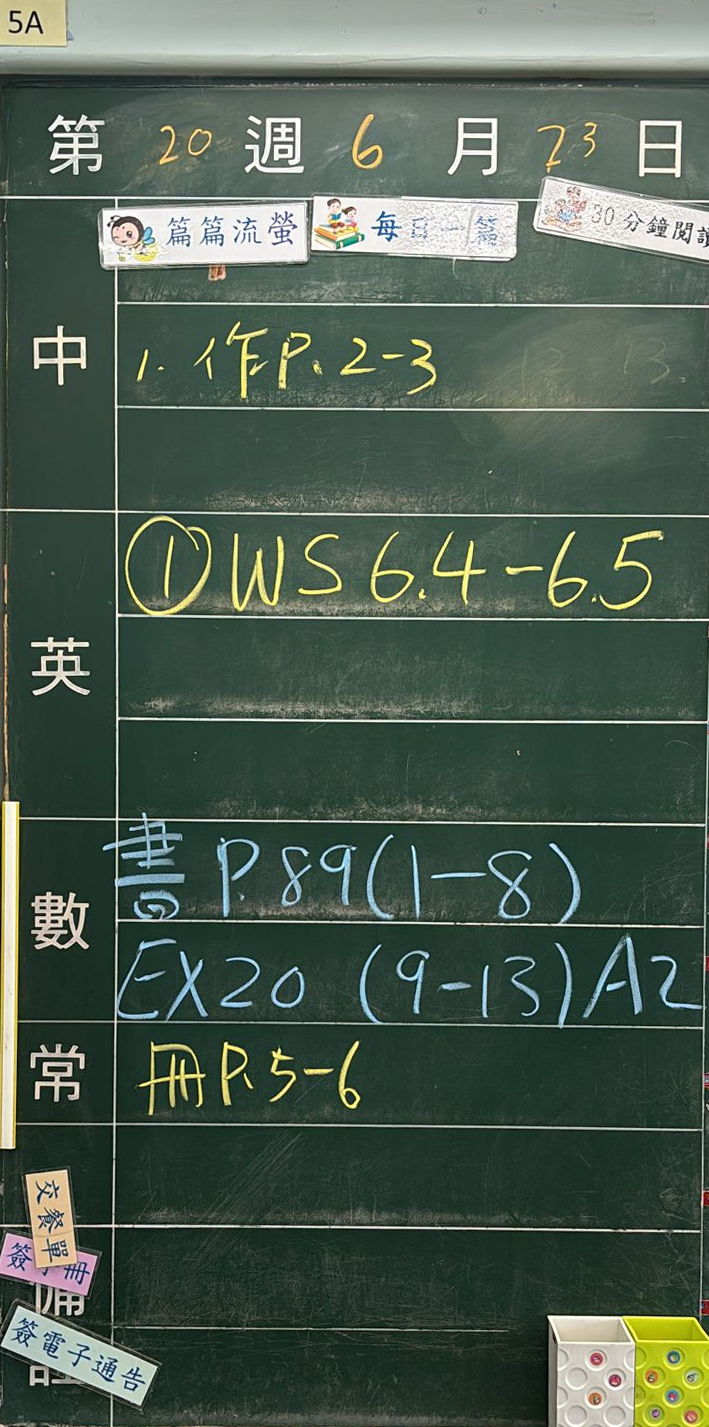 5A
第 20 週 6 月 23 日
篇篇流螢 每日一篇 30分鐘閱讀
中
1. 作P. 2-3
英
① WS 6.4-6.5
數
書 P.89(1-8)
EX20 (9-13) A2
常
冊P.5-6
交餐單
簽手冊
備
簽電子通告